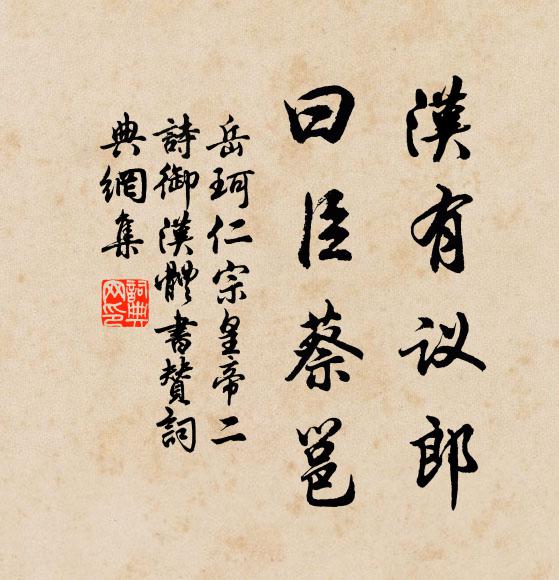 漢有议郎
曰臣蔡邕
岳珂仁宗皇帝二
詩御漢體書贊詞
典網集
詞典
网印